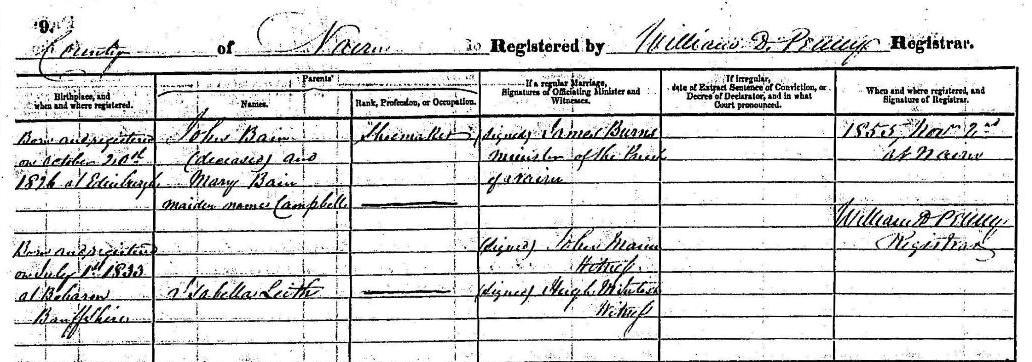 9.
County of Nairn Registered by William D. Penny Registrar.
Birthplace, and
when and where registered.
Parents'
Names.
Rank, Profession, or Occupation.
If a regular Marriage,
Signatures of Officiating Minister and
Witnesses.
If irregular,
date of Extract Sentence of Conviction, or
Decree of Declarator, and in what
Court pronounced.
When and where registered, and
Signature of Registrar.
Born and registered
on October 20th
1826 at Edinburgh
John Bain
(deceased) and
Mary Bain
maiden name Campbell
Shoemaker
(signed) James Burns
minister of the Parish
of Nairn
1855, Nov 2nd
at Nairn
William D Penny
Registrar
Born and registered
on July 1st 1833
at
Banffshire
Isabella Leith
(signed) John Mann
Witness
(signed) Hugh
Witness